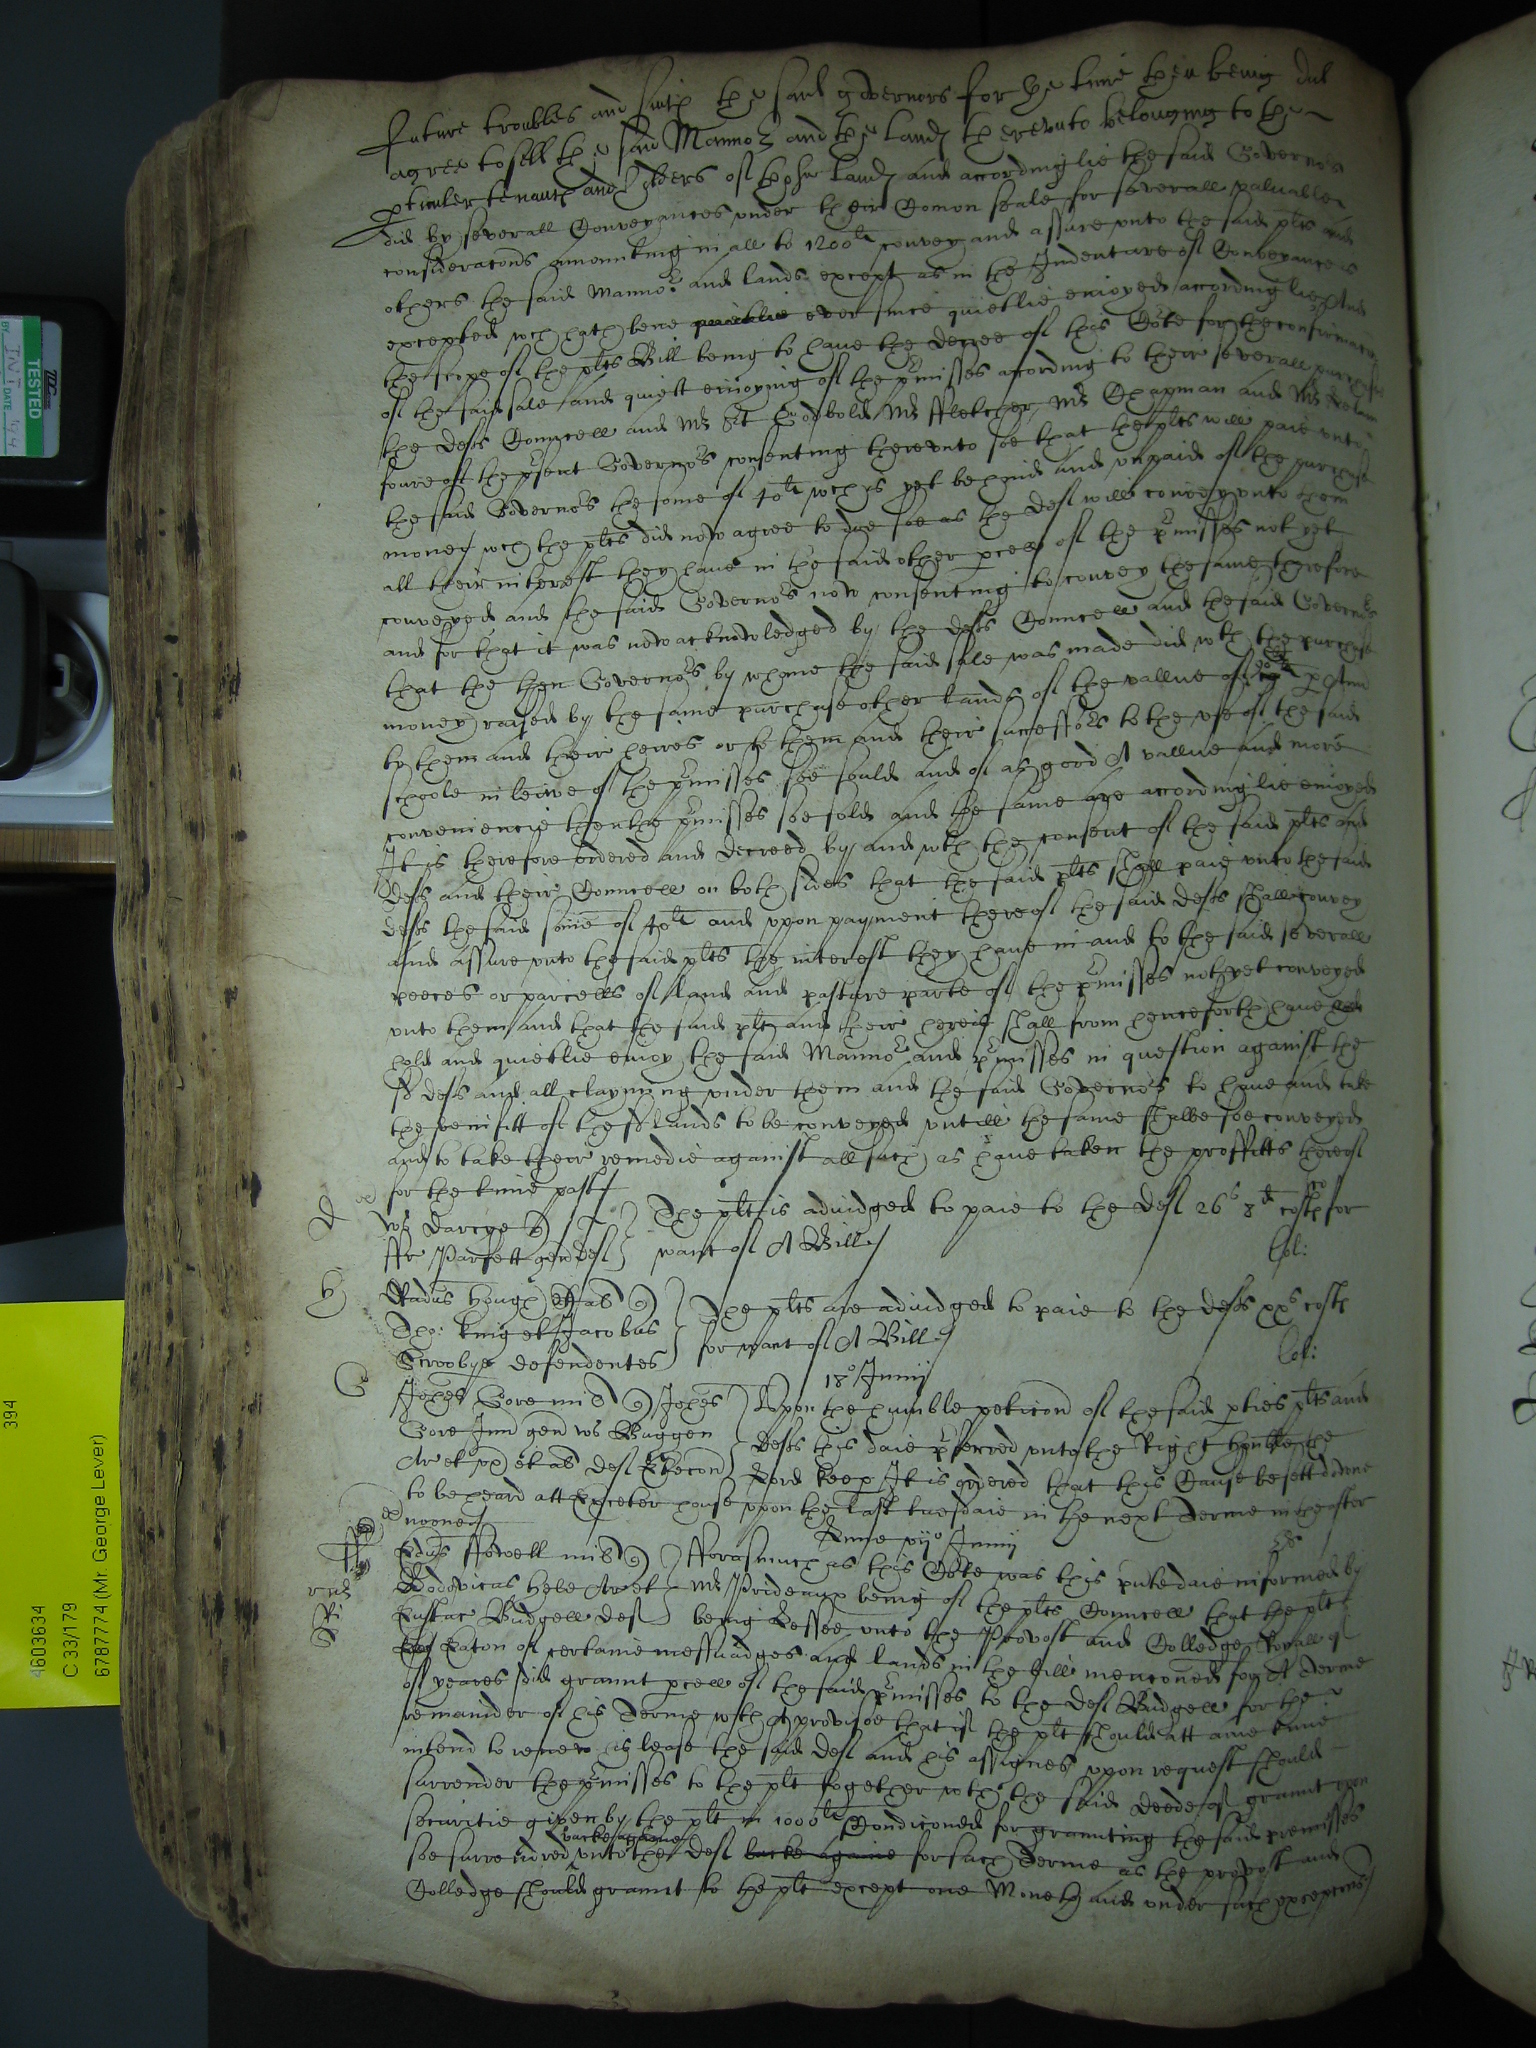 future troubles and suits the said governors for the time then being did
agree to sell the said Manno and the lands thereunto belonging to the
pticuler tenants and others of thpse lands and accordinglie the said Governors
did by severall Conveyances under their Comon seale for severall valuable
consideracons amounting in all to 1200li convey and assure unto the said plts and
others the said Manno and lands except as in the Indenture of Conveyance is
excepted wch hath bene ever since quietlie enioyed accordinglie And
the scope of the plts Bill being to have the decree of this Cote for the confirmacon
of the said sale and quiett enioying of the pmisses acording to their severall purchases
the defts Councell and Mr Godbold Mr Fletcher Mr Chapman and Mr
foure of the psent Governors consenting thereunto soe that the plts will paie unto
the said Governors the some of 40li wch is yet behind and unpaid of the purchase
money wch the plts did now agree to doe soe as the def will convey unto them
all their interest they have in the said other pcell of the pmisses not yet
conveyed and the said Governors now consenting to convey the same therefore
and for that it was now acknowledged by the defts Councell and the said Governors
that the then Governors by whome the said sale was made did wth the purchase
money raised by the same purchase other lands of the vallue of p Ann
to them and their heires or to them and their successors to the use of the said
schoole in leiwe of the pmisses soe sould and of as good A vallue and more
conveniencie then the pmisses soe sold and the same are accordinglie enioyed
It is therefore ordered and decreed by and wth the consent of the said plts and
defts and their Councell on both sides that the said plts shall paie unto the said
defts the said some of 40li and upon payment thereof the said defts shall convey
and assure unto the said plts the interest they have in and to the said severall
peeces or parcells of land and pasture parte of the pmisses not yet conveyed
unto them and that the said plts and their heires shall from henceforth have
hold and quietlie enioy the said Manno and pmisses in question against the
sd defts and all clayming under them and the said Governors to have and take
the benifitt of the sd lands to be conveyed untill the same shalbe soe conveyed
and to take their remedie against all such as have taken the proffitts thereof
for the time past
D
Ws Darcye q The plt is adiudged to paie to the def 26s 8d costs for
Fr Parfett gen def want of A Bill
Col:
H
Radus Hough et al q The plts are adiudged to paie to the defts xxs costs
Tho: King et Jacobus for want of A Bill
Scroobye defendentes Col:
18o Junij
G
Johes Gore mil q Johes Upon the humble peticon of the said pties plts and
Gore Jun gen Ws Buggen defts this daie pferred unto the Right Honble the
Ar et ux et al def Lord keep It is ordered that this Cause be sett downe
to be heard att Exceter house upon the last tuesdaie in the next Terme in the after
noone
Lune vijo Junij
Edus Fowell mil q Forasmuch as this Cote was this psent daie informed by
Lodovicus Hele Ar et Mr Prideaux being of the plts Councell that the plt
Eustac Budgell def being Lessee unto the Provost and Colledge Royall of
Eaton of certaine messuadges and lands in the bill menconed for A Terme
of yeares did graunt pcell of the said pmisses to the def Budgell for the
remainder of his Terme wth A provisoe that if the plt should att anie time
intend to renew his lease the said def and his assignes upon request should
surrender the pmisses to the plt together wth the said deede of graunt upon
securitie given by the plt in 1000li Condiconed for graunting the said premisses
backe againe
soe surrendred unto the def backe againe for such Terme as the provost and
Colledge should graunt to the plt except one Moneth and under such excepcons
TESTED
BY
DATE
394
4603634
C 33/179
6787774 (Mr. George Lever)